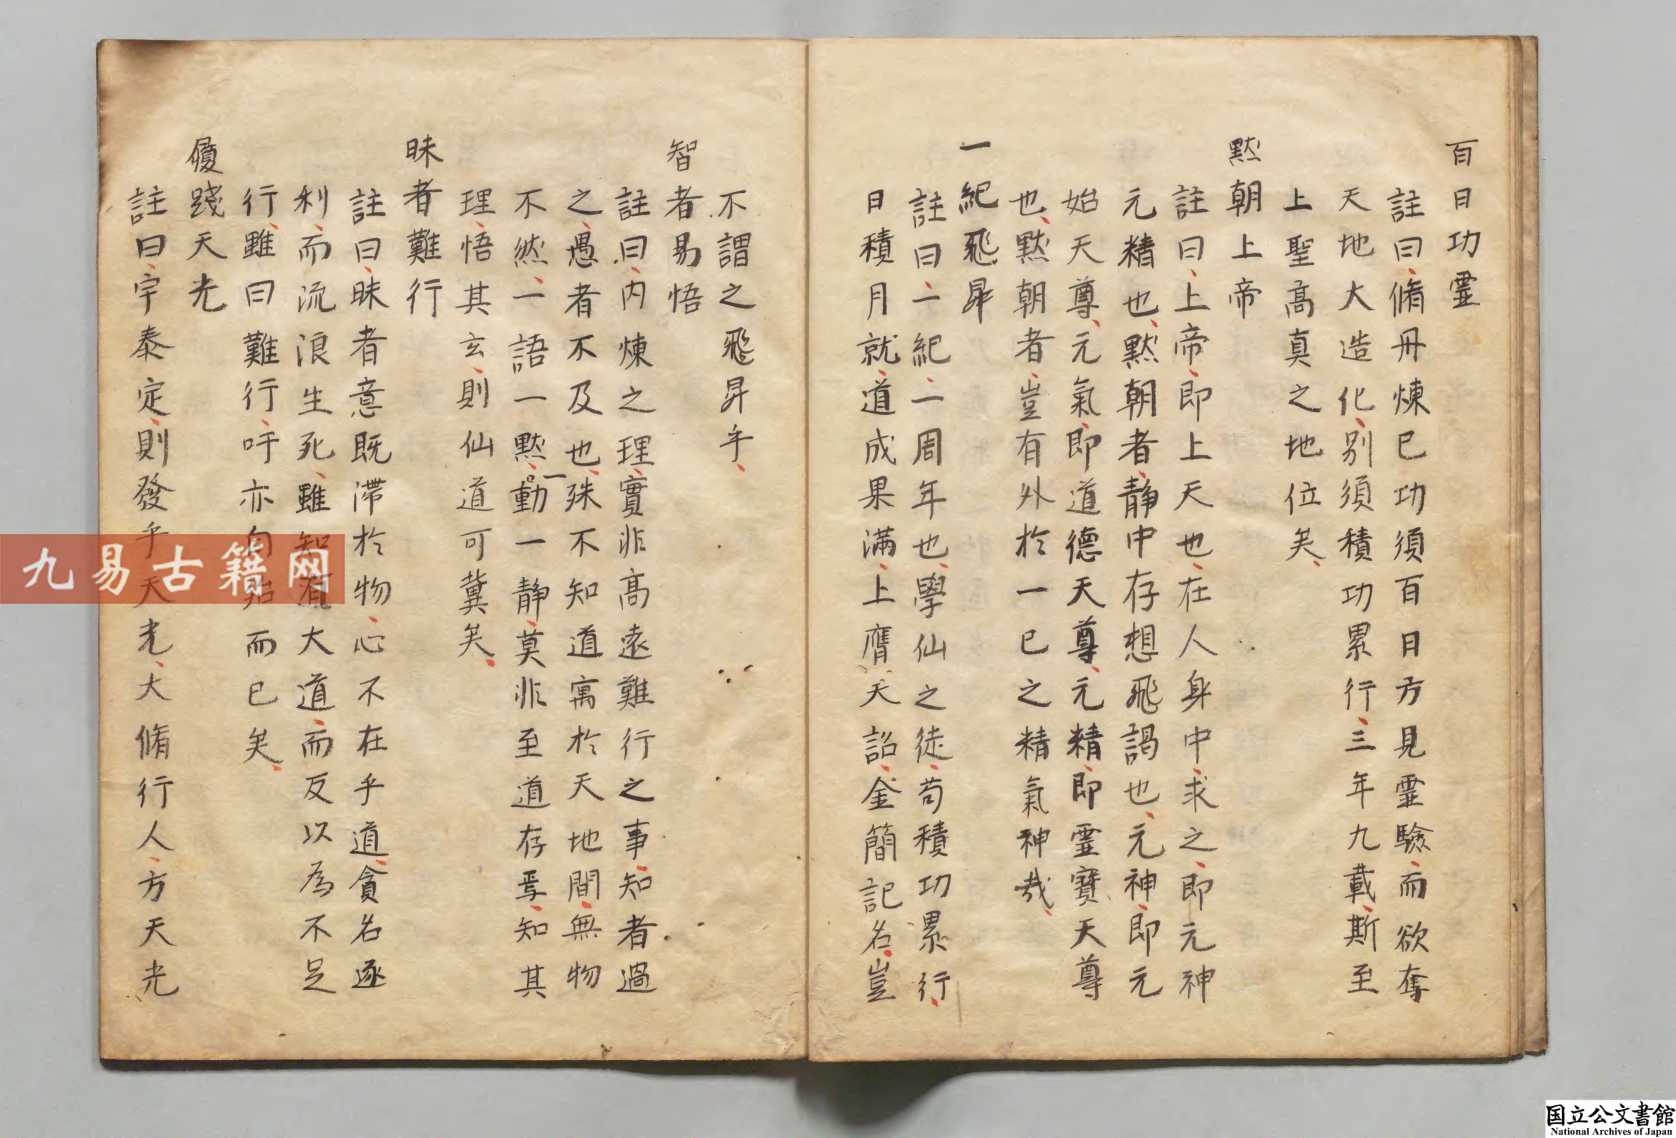 百日功霊
註曰、脩丹煉已功須百日方見霊驗、而欲奪
天地大造化、别須積功累行、三年九載、斯至
上聖髙真之地位矣、
黙朝上帝
註曰、上帝、即上天也、在人身中、求之、即元神
元精也、黙朝者、静中存想飛謁也、元神、即元
始天尊、元氣、即道德天尊、元精、即霊寶天尊
也、黙朝者、豈有外於一已之精氣神哉、
一紀飛昇
註曰、一紀、一周年也、學仙之徒、苟積功累行、
日積月就、道成果滿、上膺天詔、金簡記名、豈
不謂之飛昇乎、
智者易悟
註曰、内煉之理、實非髙遠難行之事、知者過
之、愚者不及也、殊不知道寓於天地間、無物
不然、一語一黙、一動一静、莫非至道存焉、知其
理、悟其玄、則仙道可冀矣、
昧者難行
註曰、昧者意既滯於物、心不在乎道、貪名逐
利、而流浪生死、雖知有大道、而反以為不足
行、雖曰難行、吁亦自貽而已矣、
履踐天光
註曰、宇泰定、則發乎天光、大脩行人、方天光
九易古籍网
国立公文書館
National Archives of Japan